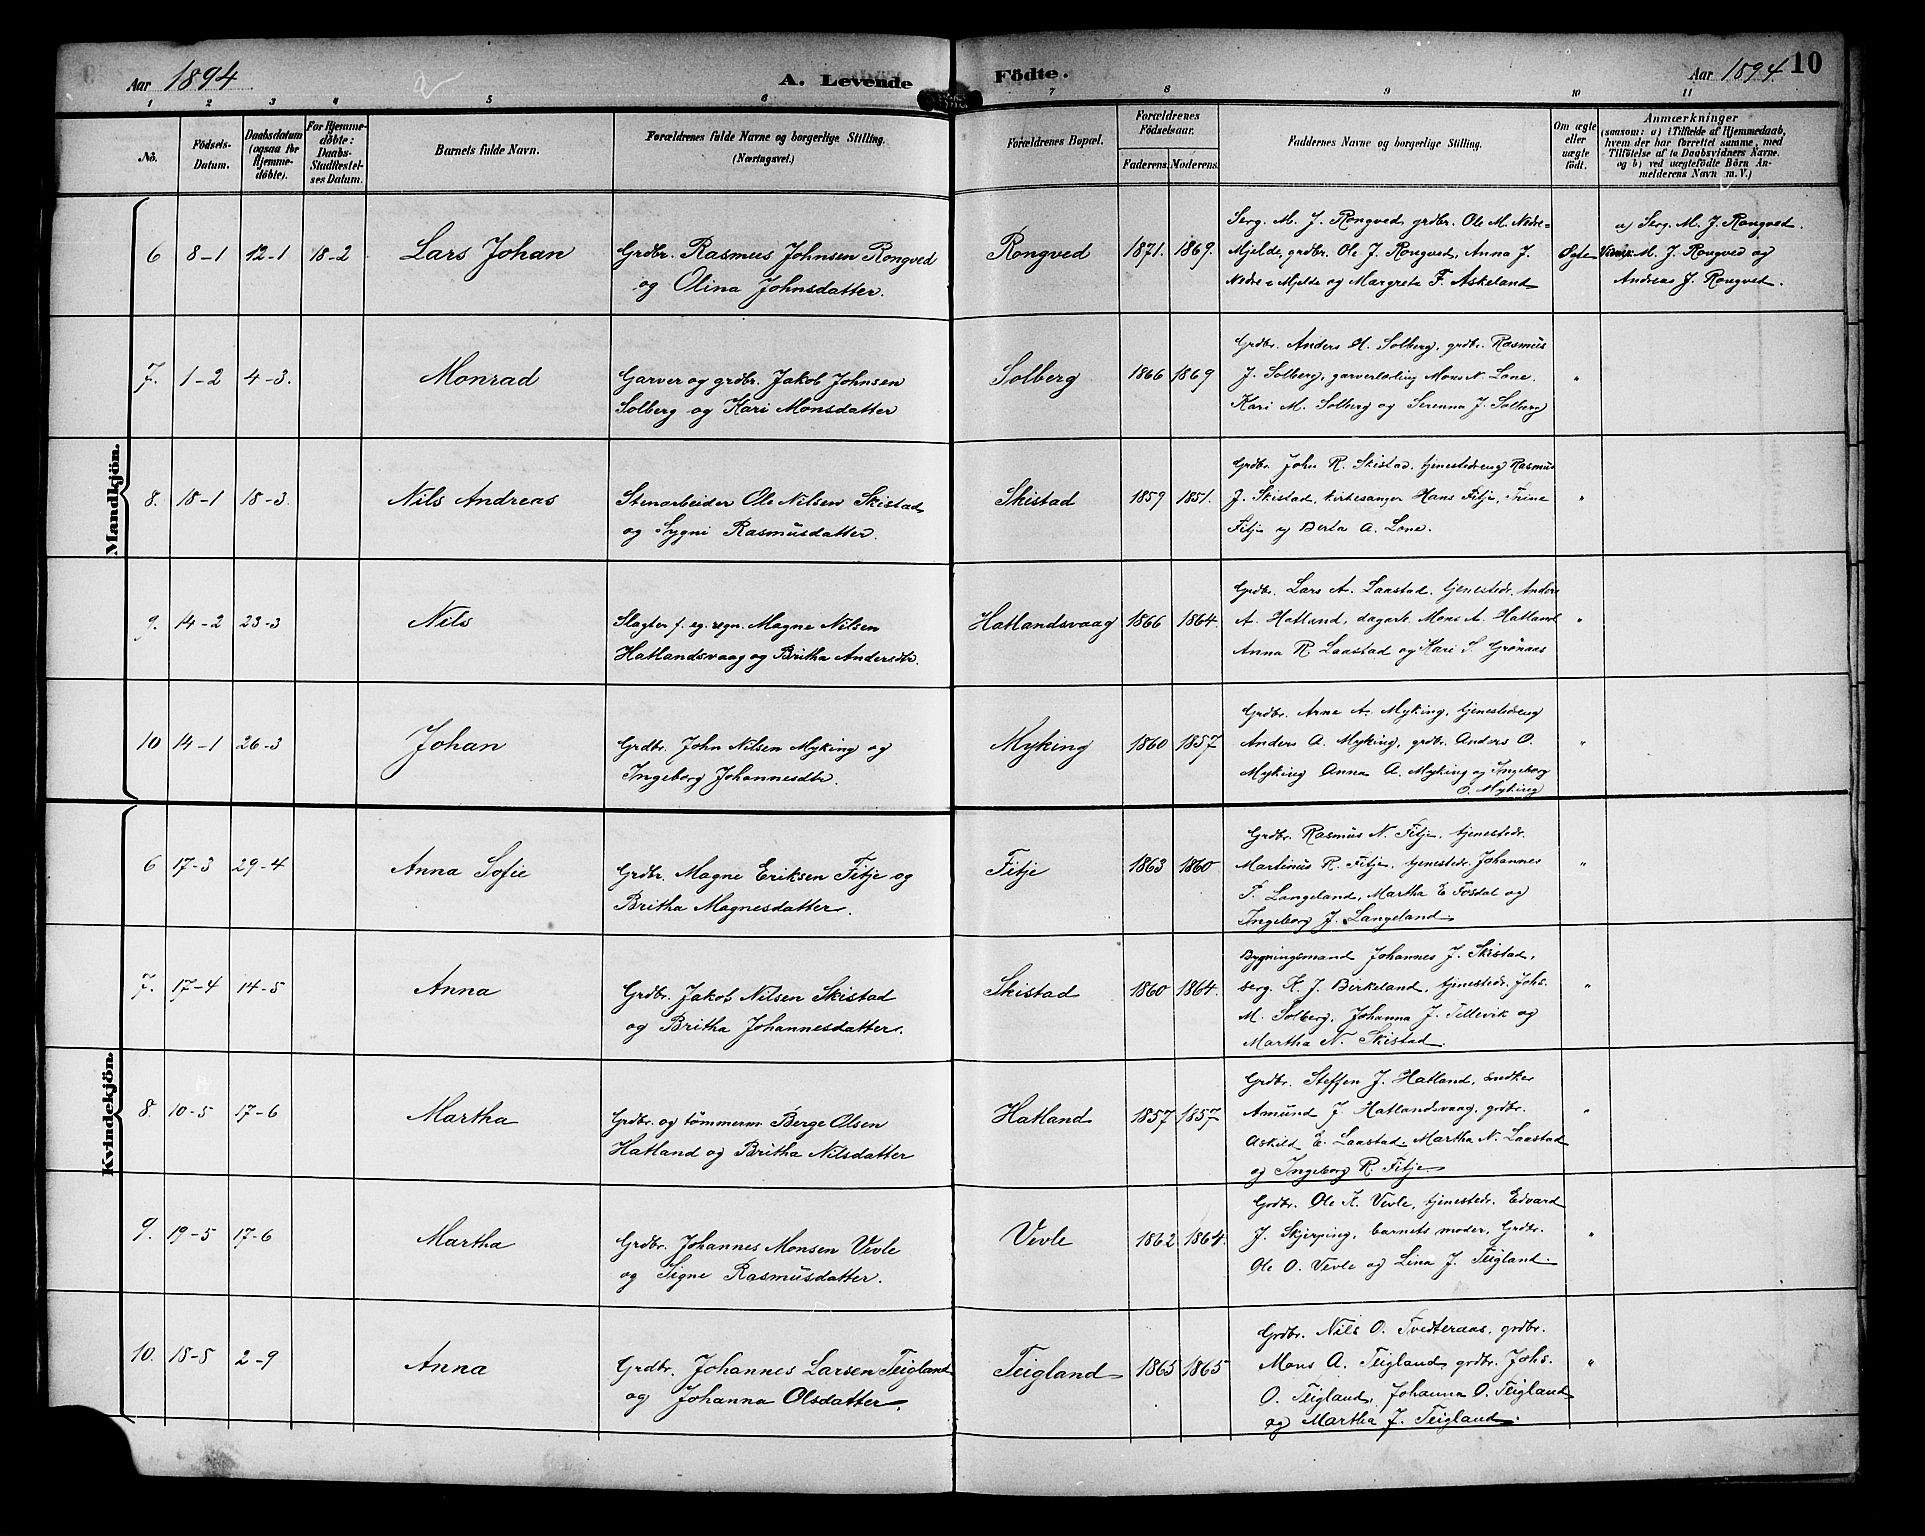 Aar 1894
A. Levende
Födte.
Aar 1894 10
1 2 3 4 5 6 7 8 9 10 11
No.
Födsels-Datum.
Daabsdatum (ogsaa for Hjemme-döbte).
For Hjemme-döbte: Daabs-Stadfestel-ses Datum.
Barnets fulde Navn.
Forældrenes fulde Navne og borgerlige Stilling. (Næringsvei.)
Forældrenes Bopæl.
Forældrenes Födselsaar.
Faderens. Moderens.
Faddernes Navne og borgerlige Stilling.
Om ægte eller uægte födt.
Anmærkninger
(saasom: a) i Tilfælde af Hjemmedaab,
hvem der har forrettet samme, med
Tilföielse af to Daabsvidners Navne.
og b) ved uægtefödte Börn An-
melderens Navn m. V.)
Mandkjön.
6 8-1 12-1 18-2 Lars Johan
Grdbr. Rasmus Johnsen Rongved
og Olina Johnsdatter.
Rongved 1871. 1869.
Serg. M. J. Rongved, grdbr. Ole M. Nedre-
Mjelde, grdbr. Ole J. Rongved, Anna J.
Nedre-Mjelde og Margreta F. Askeland
Ægte
a) Serg. M. J. Rongved.
Vidner: M. J. Rongved og
Andreas J. Rongved.
7. 1-2 4-3. Monrad
Garver og grdbr. Jakob Johnsen
Solberg og Kari Monsdatter
Solberg 1866 1869
Grdbr. Anders M. Solberg, grdbr. Rasmus
J. Solberg, garverlærling Mons N. Lone.
Kari M. Solberg og Serenna J. Solberg
"
8. 18-1 18-3. Nils Andreas
Stenarbeider Ole Nilsen Skistad
og Sygni Rasmusdatter.
Skistad 1859 1851.
Grdbr. John R. Skistad, tjenestedreng Rasmus
J. Skistad, kirkesanger Hans Fitje, Trine
Fitje og Berta A. Lone.
"
9. 14-2 23-3 Nils
Slagter f. eg. regn. Magne Nilsen
Hatlandsvaag og Britha Andersdtr.
Hatlandsvaag 1866 1864.
Grdbr. Lars A. Laastad, tjenestedr. Anders
A. Hatland, dagarb. Mons A. Hatland
Anna R. Laastad og Kari S. Grønaas
"
10 14-1 26-3 Johan
Grdbr. John Nilsen Myking og
Ingeborg Johannesdtr.
Myking 1860 1857
Grdbr. Arne A. Myking, tjenestedreng
Anders A. Myking, grdbr. Anders O.
Myking Anna A. Myking og Ingeborg
O. Myking
"
Kvindekjön.
6 17-3 29-4 Anna Sofie
Grdbr. Magne Eriksen Fitje og
Britha Magnesdatter.
Fitje 1863 1860
Grdbr. Rasmus N. Fitje, tjenestedr.
Martinus R. Fitje, tjenestedr. Johannes
F. Langeland, Martha E Fosdal og
Ingeborg J. Langeland.
"
7. 17-4 14-5 Anna
Grdbr. Jakob Nilsen Skistad
og Britha Johannesdatter.
Skistad 1860 1864.
Bygningsmand Johannes J. Skistad,
serg. K. J. Birkeland, tjenestedr. Johs.
M. Solberg, Johanna J. Tellevik og
Martha N. Skistad.
"
8. 10-5 17-6 Martha
Grdbr. og tömmerm. Berge Olsen
Hatland og Britha Nilsdatter
Hatland 1857 1857
Grdbr. Steffen J. Hatland, snedker
Amund J. Hatlandsvaag, grdbr.
Askild E. Laastad, Martha N. Laastad
og Ingeborg R. Fitje
"
9. 19-5 17-6 Martha
Grdbr. Johannes Monsen Vevle
og Signe Rasmusdatter.
Vevle 1862 1864.
Grdbr. Ole K. Vevle, tjenestedr. Edvard
J. Skjerping, barnets moder, Grdbr.
Ole O. Vevle og Lina J. Teigland.
"
10. 18-8 2-9 Anna
Grdbr. Johannes Larsen Teigland
og Johanna Olsdatter.
Teigland 1865 1865
Grdbr. Nils O. Tvedteraas, grdbr.
Mons A. Teigland, grdbr. Johs.
O. Teigland, Johanna O. Teigland
og Martha J. Teigland.
"